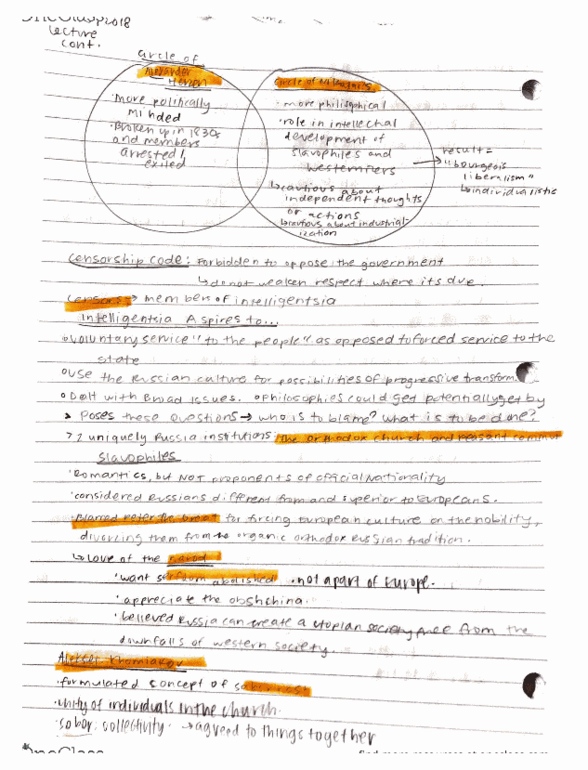 lecture
cont.
circle of
Alexander
Herzen
·More politically
minded
·Broken up in 1830s
and members
arrested/
exiled
circle of
·more philisophical
·role in intellectual
development of
slavophiles and
westernizers
↳cautious about
independent thoughts
or actions
↳cautious about industrial-
ization
→ result =
"bourgeois
liberalism"
↳individualistic
Censorship Code: Forbidden to oppose the government
↳do not weaken respect where its due.
Censors → members of intelligentsia
Intelligentsia Aspires to...
·voluntary service "to the people" as opposed to forced service to the
state
·Use the Russian culture for possibilities of progressive transform
·Dealt with Broad Issues. ·Philosophies could get potentially get by
> Poses these questions → who is to blame? what is to be done?
> 2 uniquely Russia institutions: the orthodox church and peasant commun
Slavophiles
·Romantics, but NOT proponents of official Nationality
·considered Russians different from and superior to Europeans.
·Blamed Peter the Great for forcing European culture on the nobility,
divorcing them from the organic orthodox Russian tradition.
↳Love of the narod
·want serfdom abolished ·not apart of Europe.
·appreciate the obshchina.
·believed Russia can create a utopian society free from the
downfalls of western society.
Aleksei Khomiakov
·formulated concept of sobornost
·unity of individuals in the church.
·sobor: collectivity. →agreed to things together
OneClass